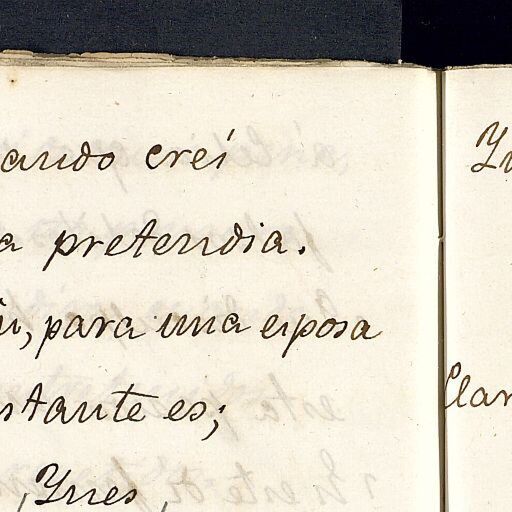 ando creí
a pretendia.
n, para una esposa
stante es;
, Ynes,
Clar